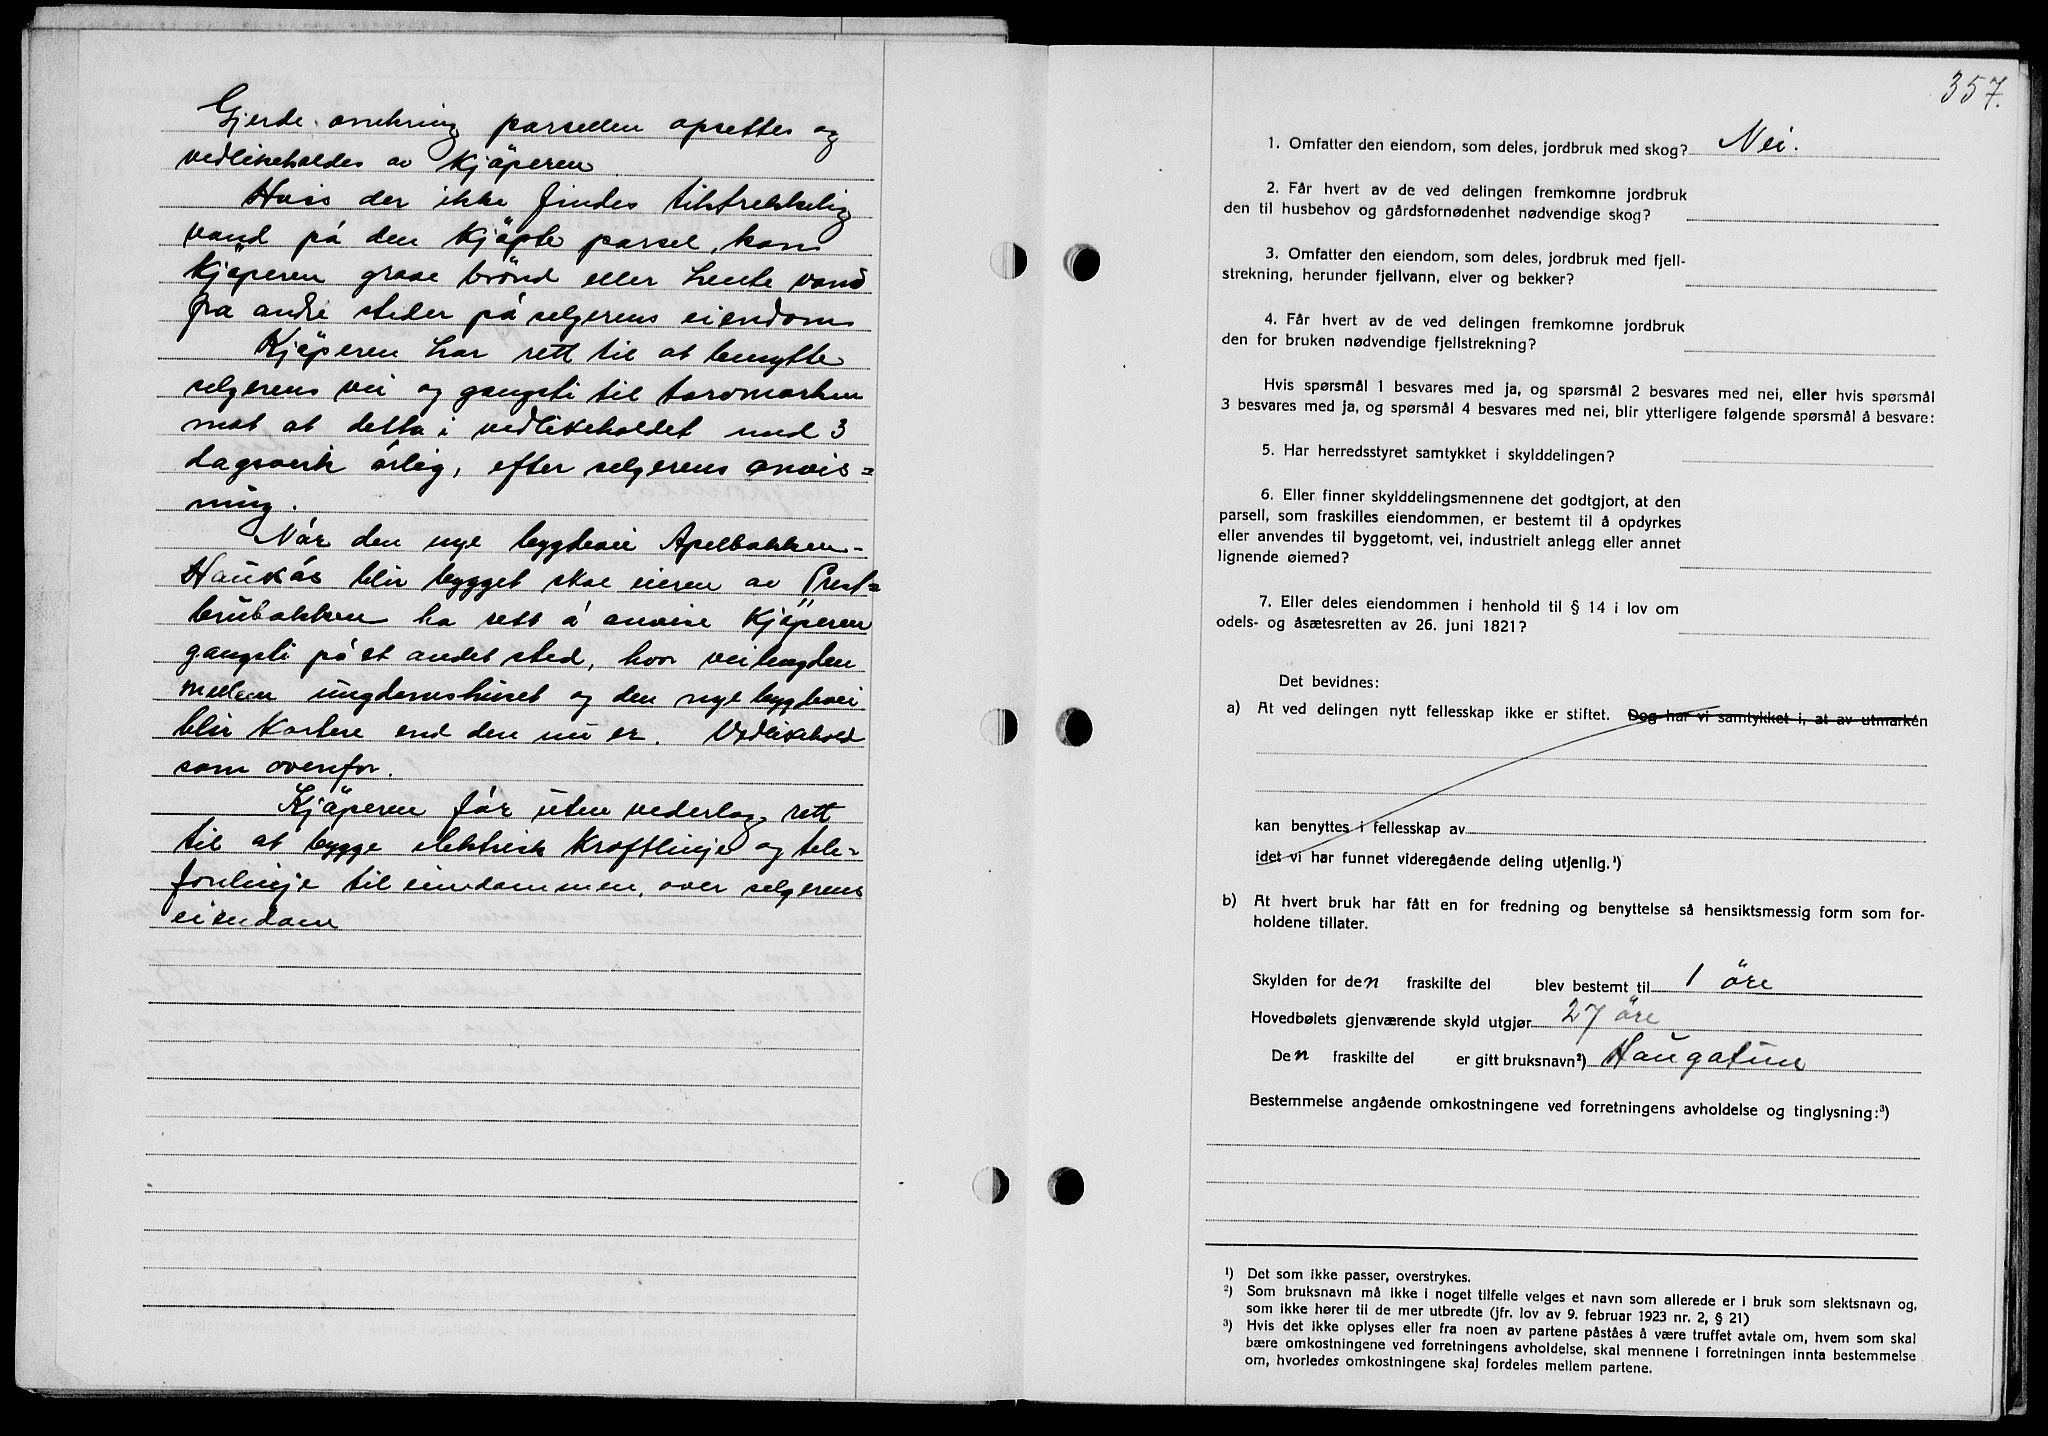 Gjerde omkring parsellen opsettes og
vedlikeholdes av kjöperen
Hvis der ikke findes tilstrekkelig
vand på den kjöpte parsel, kan
kjöperen grave brönd eller hente vand
fra andre steder på selgerens eiendom
Kjöperen har rett til at benytte
selgerens vei og gangsti til
mot at delta i vedlikeholdet med 3
dagsverk årlig, efter selgerens anvis=
ning.
Når den nye bygdevei Apelbakken-
Haukås blir bygget skal eieren av Prest=
brubakken ha rett å anvise kjöperen
gangsti på et andet sted, hvor veilengden
mellem ungdomshuset og den nye bygdevei
blir kortere end den nu er. Vedlikehold
som ovenfor.
Kjöperen får uten vederlag rett
til at bygge elektrisk kraftlinje og tele-
fonlinje til eiendommen, over selgerens
eiendom
357.
1. Omfatter den eiendom, som deles, jordbruk med skog? Nei.
2. Får hvert av de ved delingen fremkomne jordbruk
den til husbehov og gårdsfornødenhet nødvendige skog?
3. Omfatter den eiendom, som deles, jordbruk med fjell-
strekning, herunder fjellvann, elver og bekker?
4. Får hvert av de ved delingen fremkomne jordbruk
den for bruken nødvendige fjellstrekning?
Hvis spørsmål 1 besvares med ja, og spørsmål 2 besvares med nei, eller hvis spørsmål
3 besvares med ja, og spørsmål 4 besvares med nei, blir ytterligere følgende spørsmål å besvare:
5. Har herredsstyret samtykket i skylddelingen?
6. Eller finner skylddelingsmennene det godtgjort, at den
parsell, som fraskilles eiendommen, er bestemt til å opdyrkes
eller anvendes til byggetomt, vei, industrielt anlegg eller annet
lignende øiemed?
7. Eller deles eiendommen i henhold til § 14 i lov om
odels- og åsætesretten av 26. juni 1821?
Det bevidnes:
a) At ved delingen nytt fellesskap ikke er stiftet. Dog har vi samtykket i, at av utmarken
kan benyttes i fellesskap av
idet vi har funnet videregående deling utjenlig.¹)
b) At hvert bruk har fått en for fredning og benyttelse så hensiktsmessig form som for-
holdene tillater.
Skylden for den fraskilte del blev bestemt til 1 öre
Hovedbølets gjenværende skyld utgjør 27 öre
Den fraskilte del er gitt bruksnavn²) Haugatun
Bestemmelse angående omkostningene ved forretningens avholdelse og tinglysning:³)
¹) Det som ikke passer, overstrykes.
²) Som bruksnavn må ikke i noget tilfelle velges et navn som allerede er i bruk som slektsnavn og,
som ikke hører til de mer utbredte (jfr. lov av 9. februar 1923 nr. 2, § 21)
³) Hvis det ikke oplyses eller fra noen av partene påståes å være truffet avtale om, hvem som skal
bære omkostningene ved forretningens avholdelse, skal mennene i forretningen innta bestemmelse
om, hvorledes omkostningene skal fordeles mellem partene.